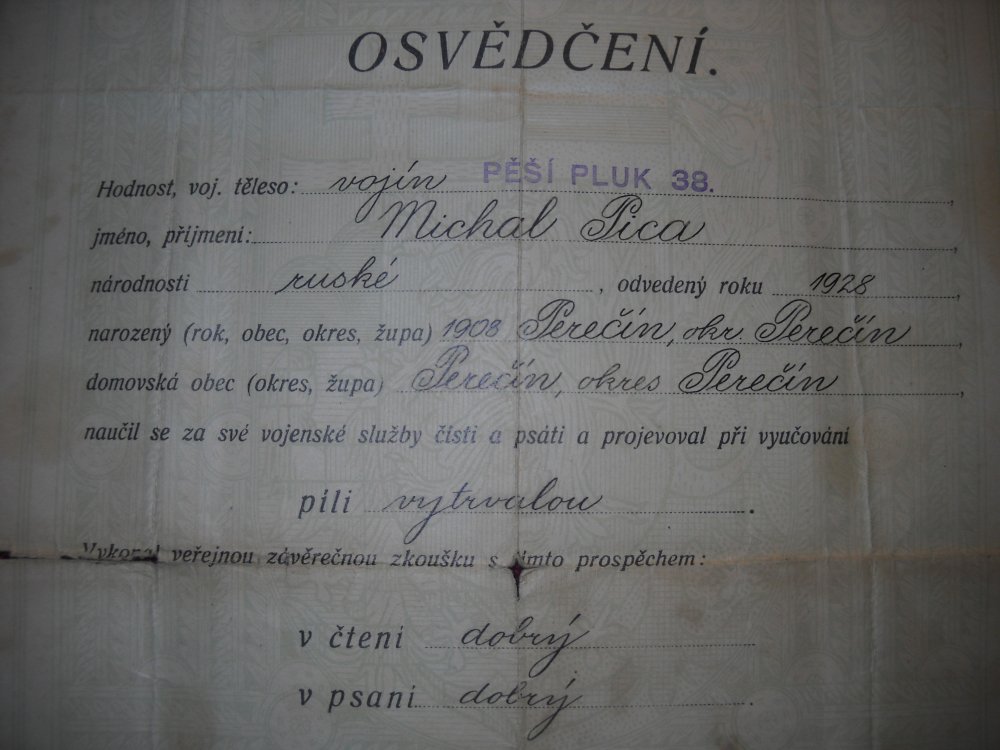 OSVĚDČENÍ.
Hodnost, voj. těleso: vojín PĚŠÍ PLUK 38.,
jméno, příjmení: Michal Pica,
národnosti ruské, odvedený roku 1928,
narozený (rok, obec, okres, župa) 1908 Perečín, okr. Perečín,
domovská obec (okres, župa) Perečín, okres Perečín,
naučil se za své vojenské služby čísti a psáti a projevoval při vyučování
píli vytrvalou.
Vykonal veřejnou závěrečnou zkoušku s tímto prospěchem:
v čtení dobrý
v psaní dobrý.